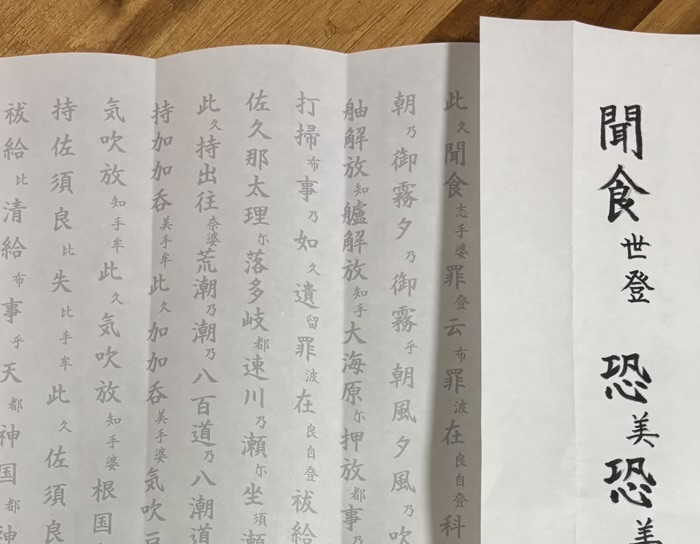 聞食世登 恐美恐美
此久聞食志手婆罪登云布罪波在良自登科
朝乃御霧夕乃御霧乎朝風夕風乃吹
舳解放知艫解放知手大海原尓押放都事乃
打掃布事乃如久遺留罪波在良自登祓給
佐久那太理尓落多岐都速川乃瀬尓坐須瀬
此久持出往奈婆荒潮乃潮乃八百道乃八潮道
持加加呑美手牟此久加加呑美手婆気吹
気吹放知手牟此久気吹放知手婆根国
持佐須良比失比手牟此久佐須良
祓給比清給布事乎天都神国都神